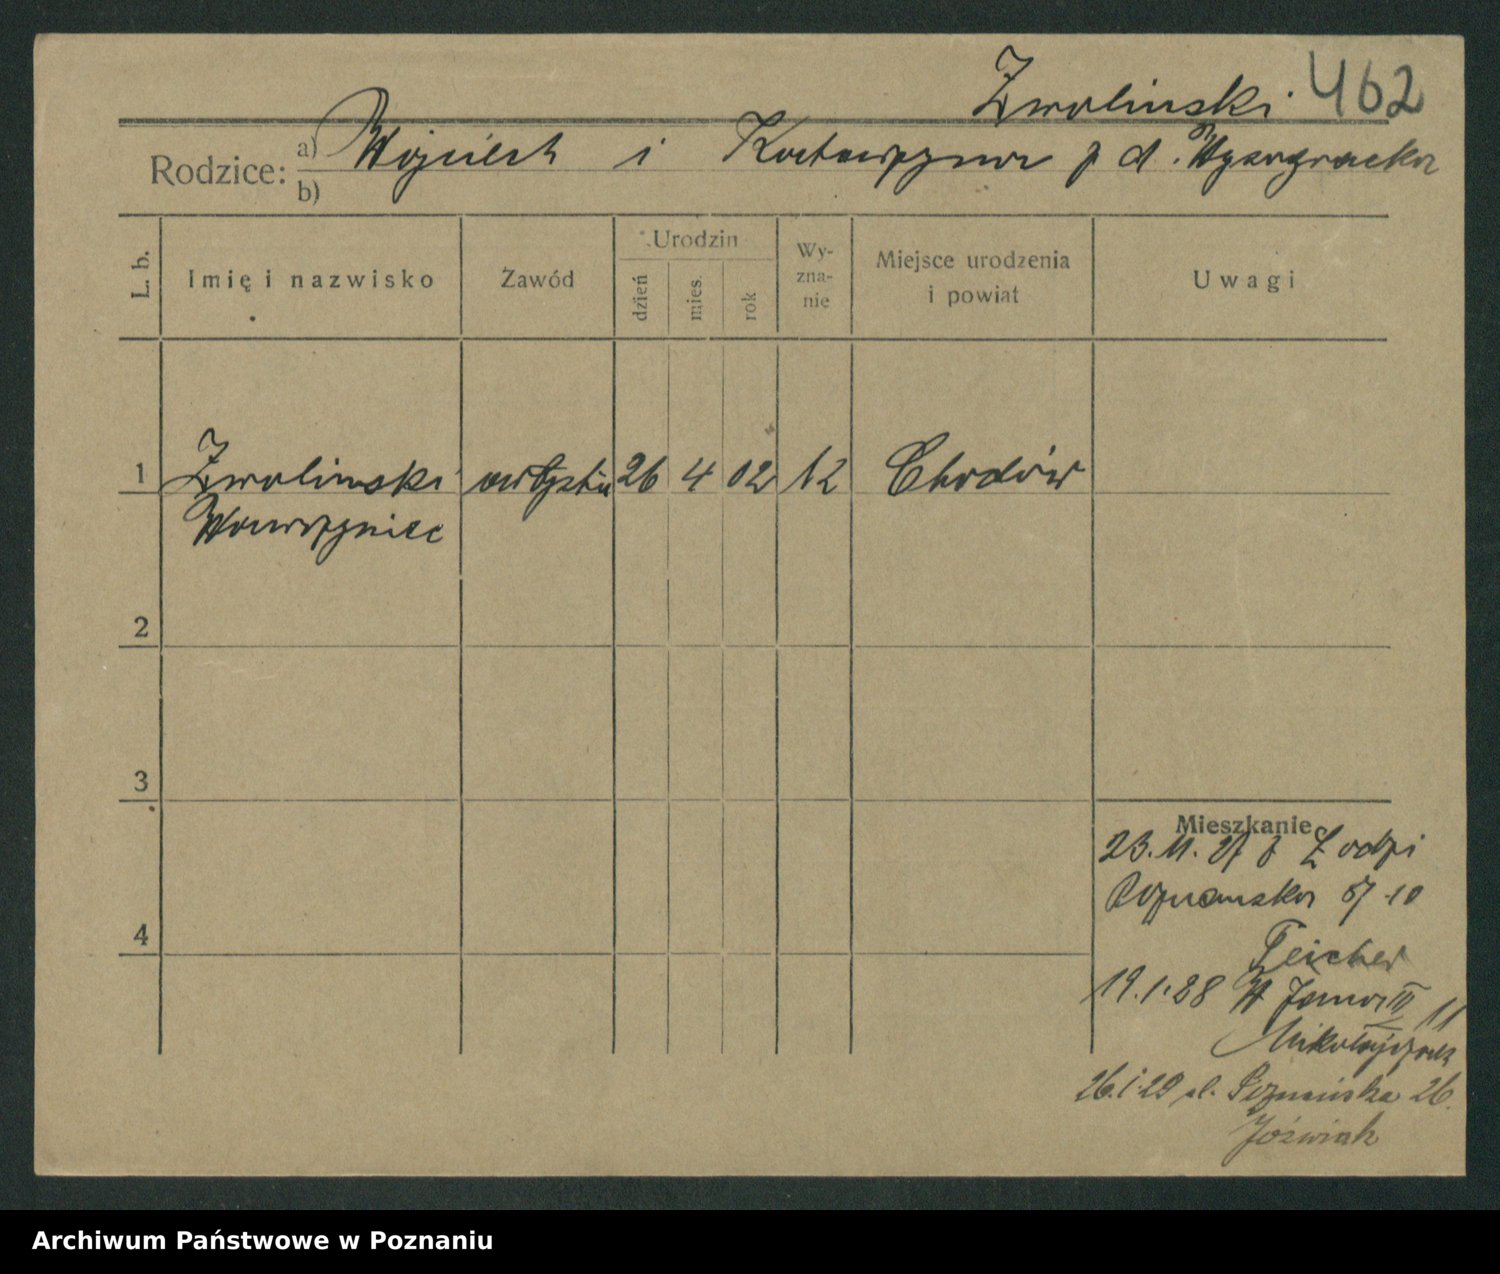 Zwolinski 462
Rodzice: a) Wojciech i Katarzyna z d. Wysogracka
b)
L. b. Imię i nazwisko Zawód Urodzin dzień mies. rok Wy-zna-nie Miejsce urodzenia i powiat Uwagi
1 Zwolinski artysta 26 4 02 Chodów
Wawrzyniec
2
3
Mieszkanie
23.11.27 z Łodzi
Poznanska 57-10
4
Teicher
19.1.28 III 11
Mikołajczak
26.1.29 ul. Poznańska 26.
Jóźwiak
Archiwum Państwowe w Poznaniu